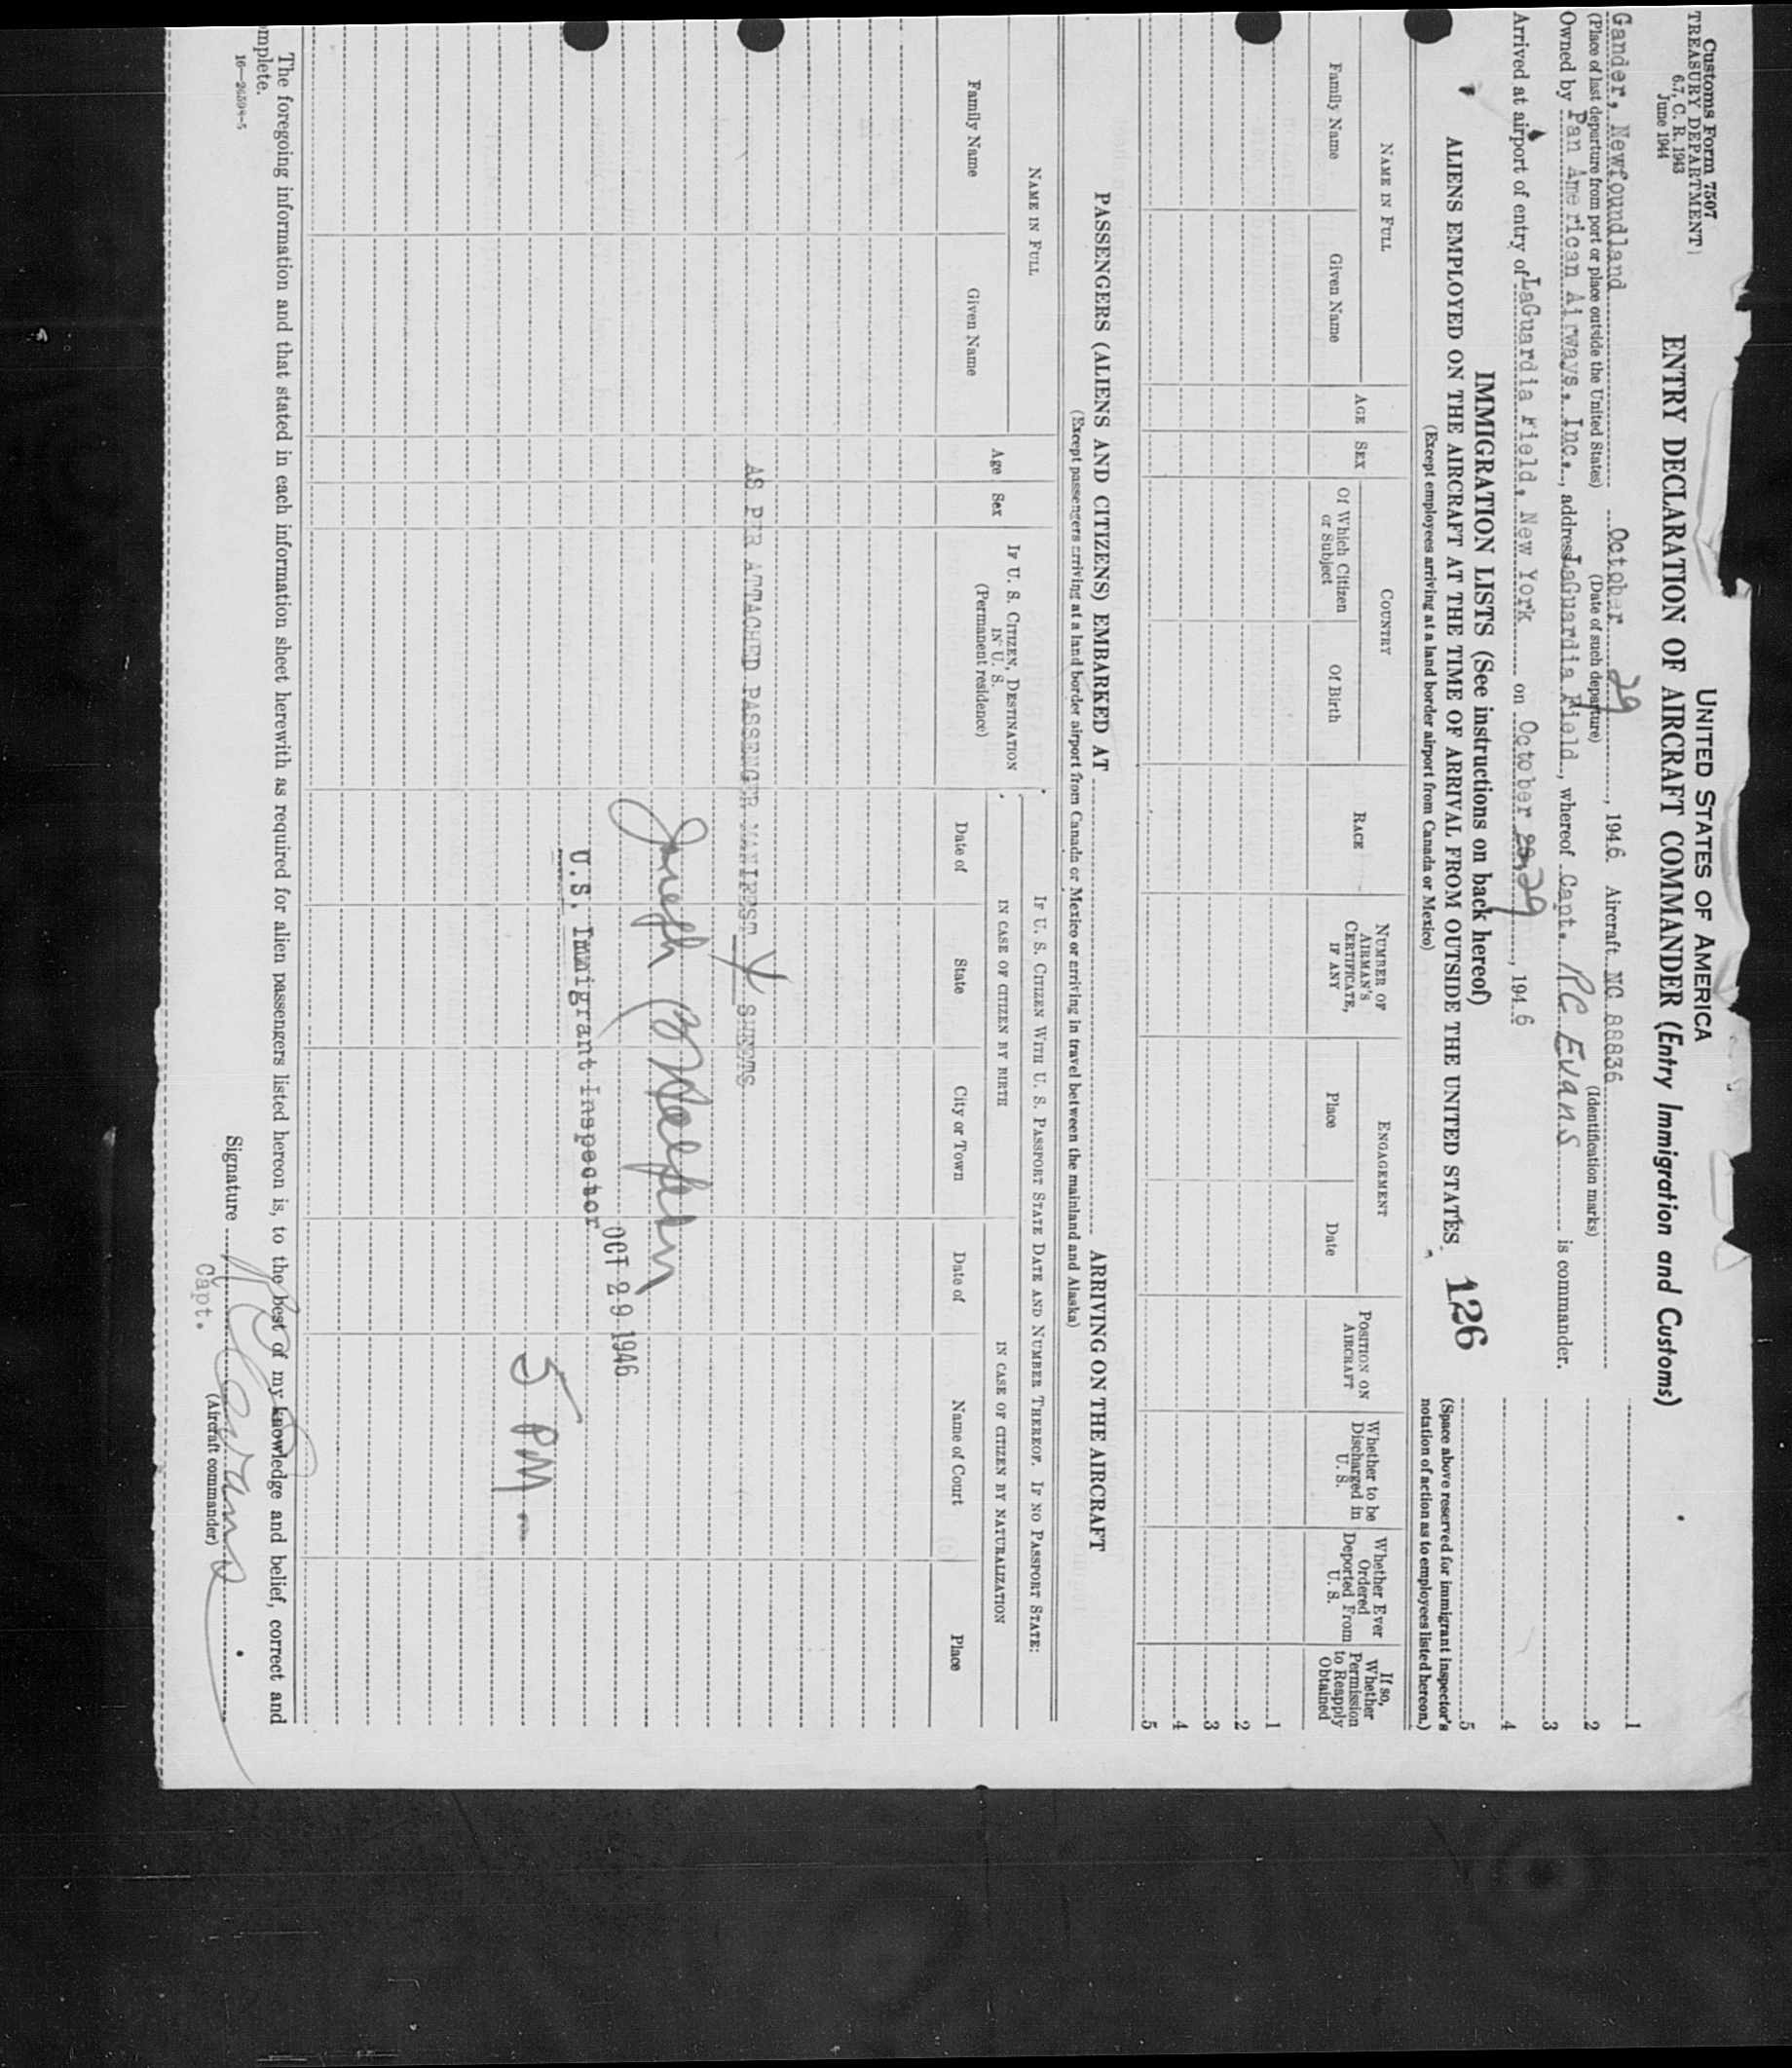 Customs Form 7507
TREASURY DEPARTMENT
6.7, C. R. 1943
June 1944
UNITED STATES OF AMERICA
ENTRY DECLARATION OF AIRCRAFT COMMANDER (Entry Immigration and Customs)
Gander, Newfoundland October 29, 1946 Aircraft NC 88836
(Place of last departure from port or place outside the United States) (Date of such departure) (Identification marks)
Owned by Pan American Airways, Inc., address LaGuardia Field, whereof Capt. RC Evans is commander.
Arrived at airport of entry of LaGuardia Field, New York on October 29, 1946
1
2
3
4
5
(Space above reserved for immigrant inspector's notation of action as to employees listed hereon.)
IMMIGRATION LISTS (See instructions on back hereof)
ALIENS EMPLOYED ON THE AIRCRAFT AT THE TIME OF ARRIVAL FROM OUTSIDE THE UNITED STATES. 126
(Except employees arriving at a land border airport from Canada or Mexico)
NAME IN FULL
Family Name Given Name
AGE
SEX
COUNTRY
Of Which Citizen or Subject
Of Birth
RACE
NUMBER OF AIRMAN'S CERTIFICATE, IF ANY
ENGAGEMENT
Place Date
POSITION ON AIRCRAFT
Whether to be Discharged in U. S.
Whether Ever Ordered Deported From U. S.
If so, Whether Permission to Reapply Obtained
1
2
3
4
5
PASSENGERS (ALIENS AND CITIZENS) EMBARKED AT ARRIVING ON THE AIRCRAFT
(Except passengers arriving at a land border airport from Canada or Mexico or arriving in travel between the mainland and Alaska)
NAME IN FULL
Family Name Given Name
Age
Sex
IF U. S. CITIZEN, DESTINATION IN U. S.
(Permanent residence)
IF U. S. CITIZEN WITH U. S. PASSPORT STATE DATE AND NUMBER THEREOF. IF NO PASSPORT STATE:
IN CASE OF CITIZEN BY BIRTH
Date of State City or Town
IN CASE OF CITIZEN BY NATURALIZATION
Date of Name of Court Place
AS PER ATTACHED PASSENGER MANIFEST SHEETS
Joseph
OCT 29 1946
U.S. Immigrant Inspector
5 PM
The foregoing information and that stated in each information sheet herewith as required for alien passengers listed hereon is, to the best of my knowledge and belief, correct and
mplete.
16—26594-5
Signature RC Evans
Capt. (Aircraft commander)